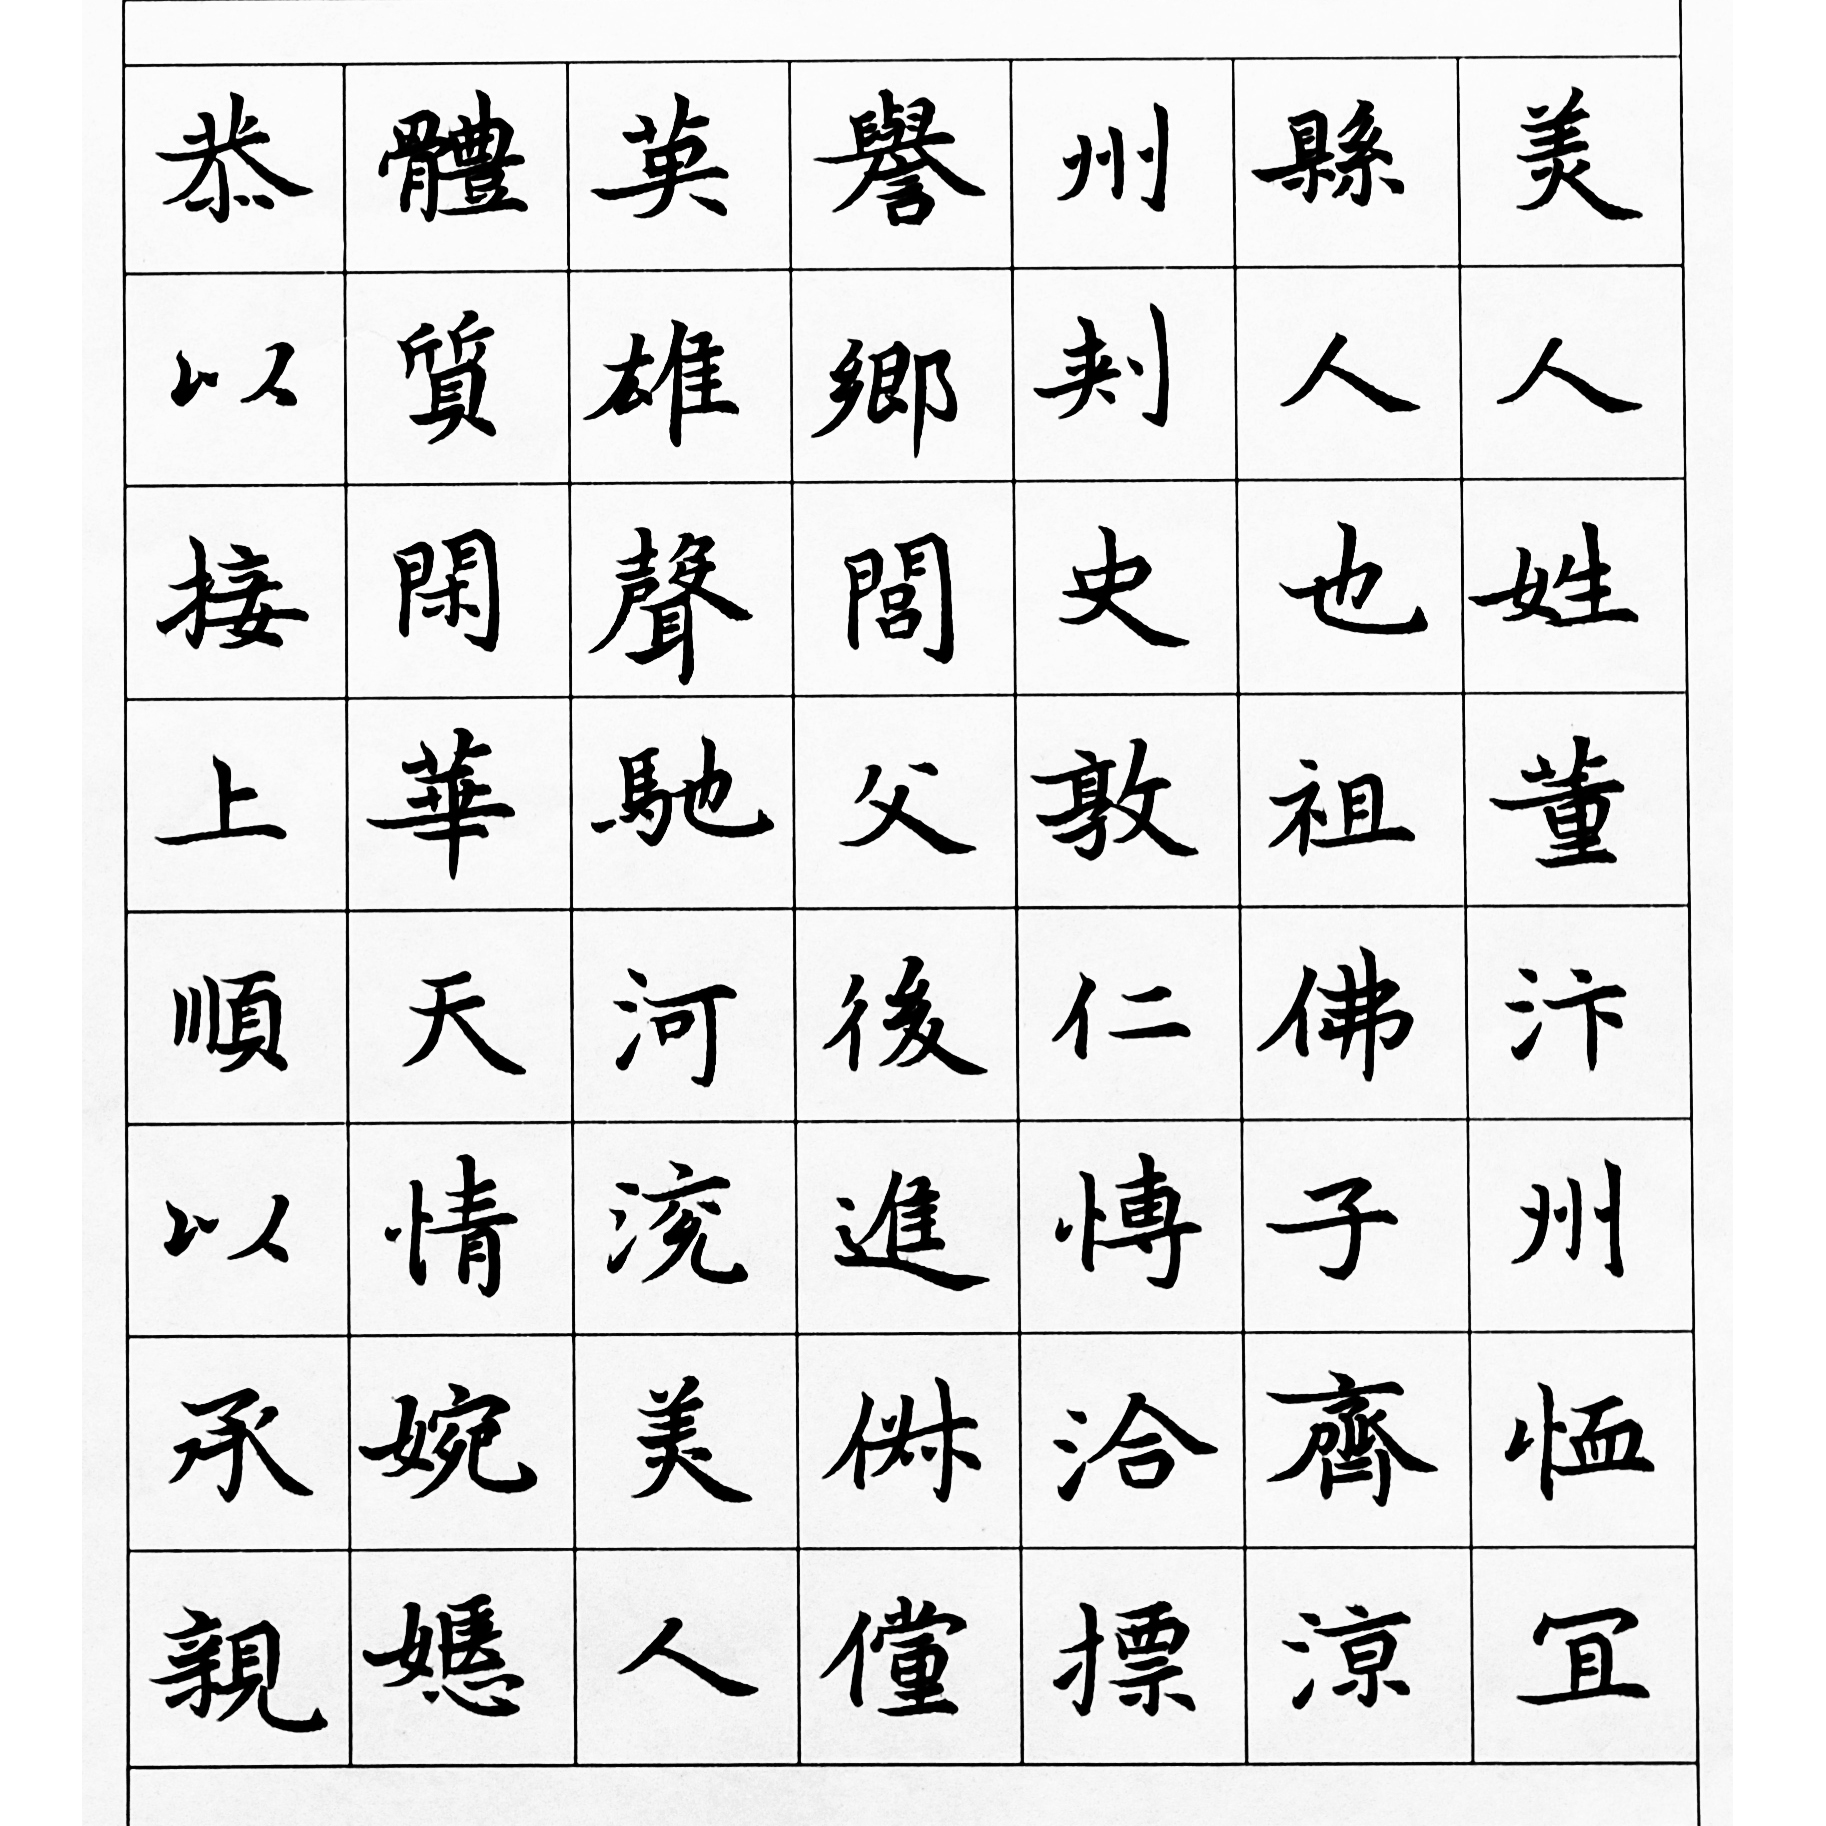 美人姓董汴州恤冝
縣人也祖佛子齊涼
州刾史敦仁愽洽摽
譽鄉閭父後進俶儻
英雄聲馳河兗美人
體質閑華天情婉嫕
恭以接上順以承親